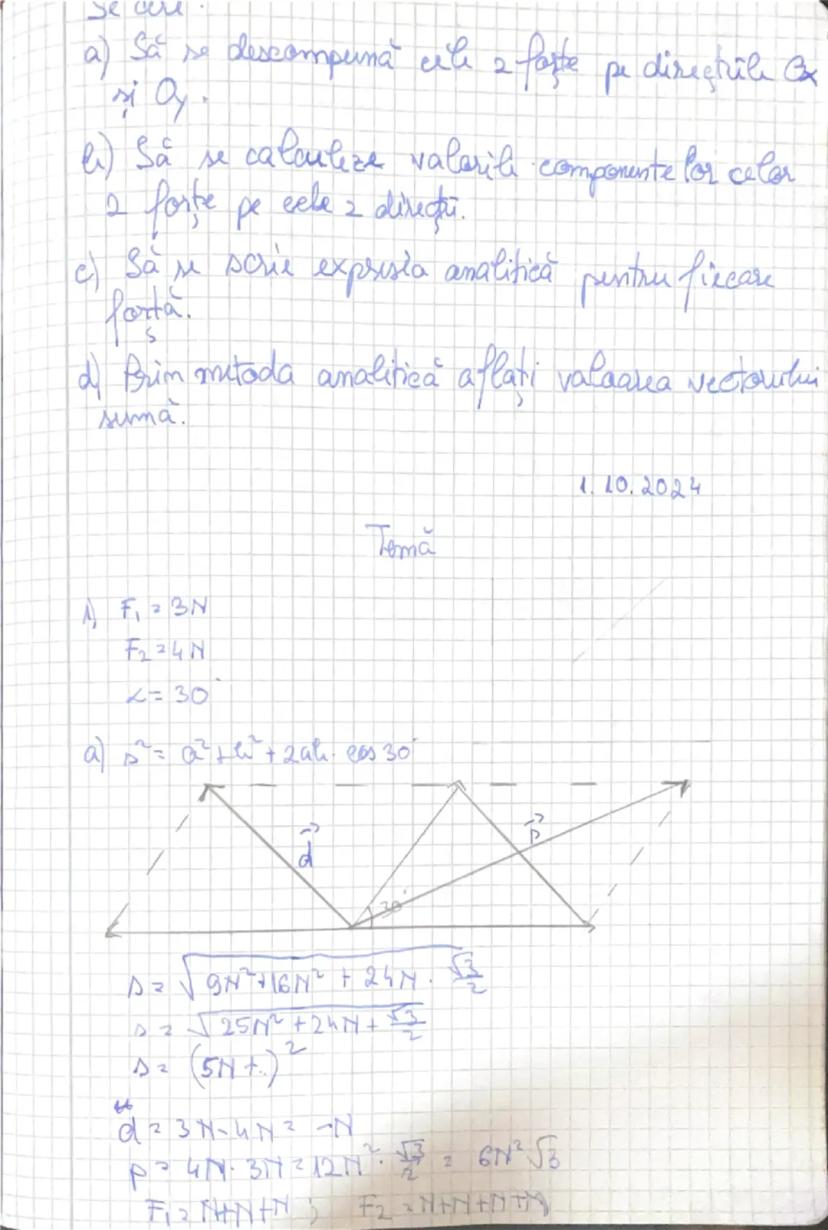 Se cere:
a) Să se descompună cele 2 forțe pe direcțiile Ox
și Oy.
b) Să se calculeze valorile componentelor celor
2 forțe pe cele 2 direcții.
c) Să se scrie expresia analitică pentru fiecare
forță.
d) Prin metoda analitică aflați valoarea vectorului
sumă.
1.10.2024
Temă
1) F₁ = 3N
F₂ = 4N
α = 30°
a) s² = a² + b² + 2ab · cos 30°
d⃗
30°
s = √(9N² + 16N² + 24N · √3/2)
s = √(25N² + 24N + √3/2)
s = (5N + .)²
d = 3N - 4N = -N
p = 4N · 3N = 12N² · √3/2 = 6N²√3
F₁ = N+N+N ; F₂ = N+N+N+N